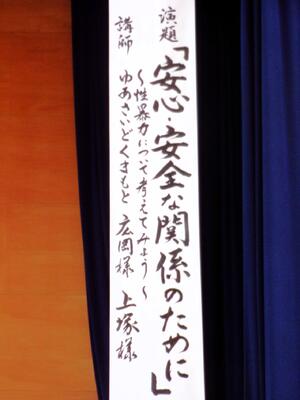 演題「安心・安全な関係のために」
〜性暴力について考えてみよう〜
講師 ゆあさいどくまもと 広岡様 上塚様